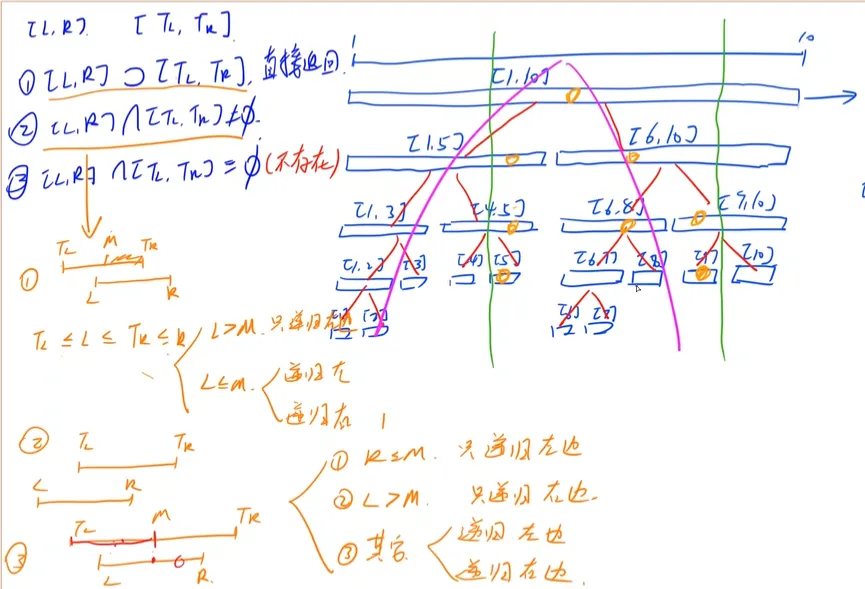 [L,R]. [TL, TR]
① [L,R] ⊃ [TL, TR], 直接返回.
② [L,R] ∩ [TL, TR] ≠ ∅.
③ [L,R] ∩ [TL, TR] = ∅ (不存在)
1 10
[1,10]
[1,5] [6,10]
[1,3] [4,5] [6,8] [9,10]
[1,2] [3] [4] [5] [6,7] [8] [9] [10]
[1] [2] [6] [7]
① TL M TR
L R
TL ≤ L ≤ TR ≤ R
L>M. 只递归右边
L≤M.
递归左
递归右
② TL TR
L R
③ TL M TR
L R.
① R≤M. 只递归左边
② L>M. 只递归右边.
③ 其它
递归左边
递归右边.